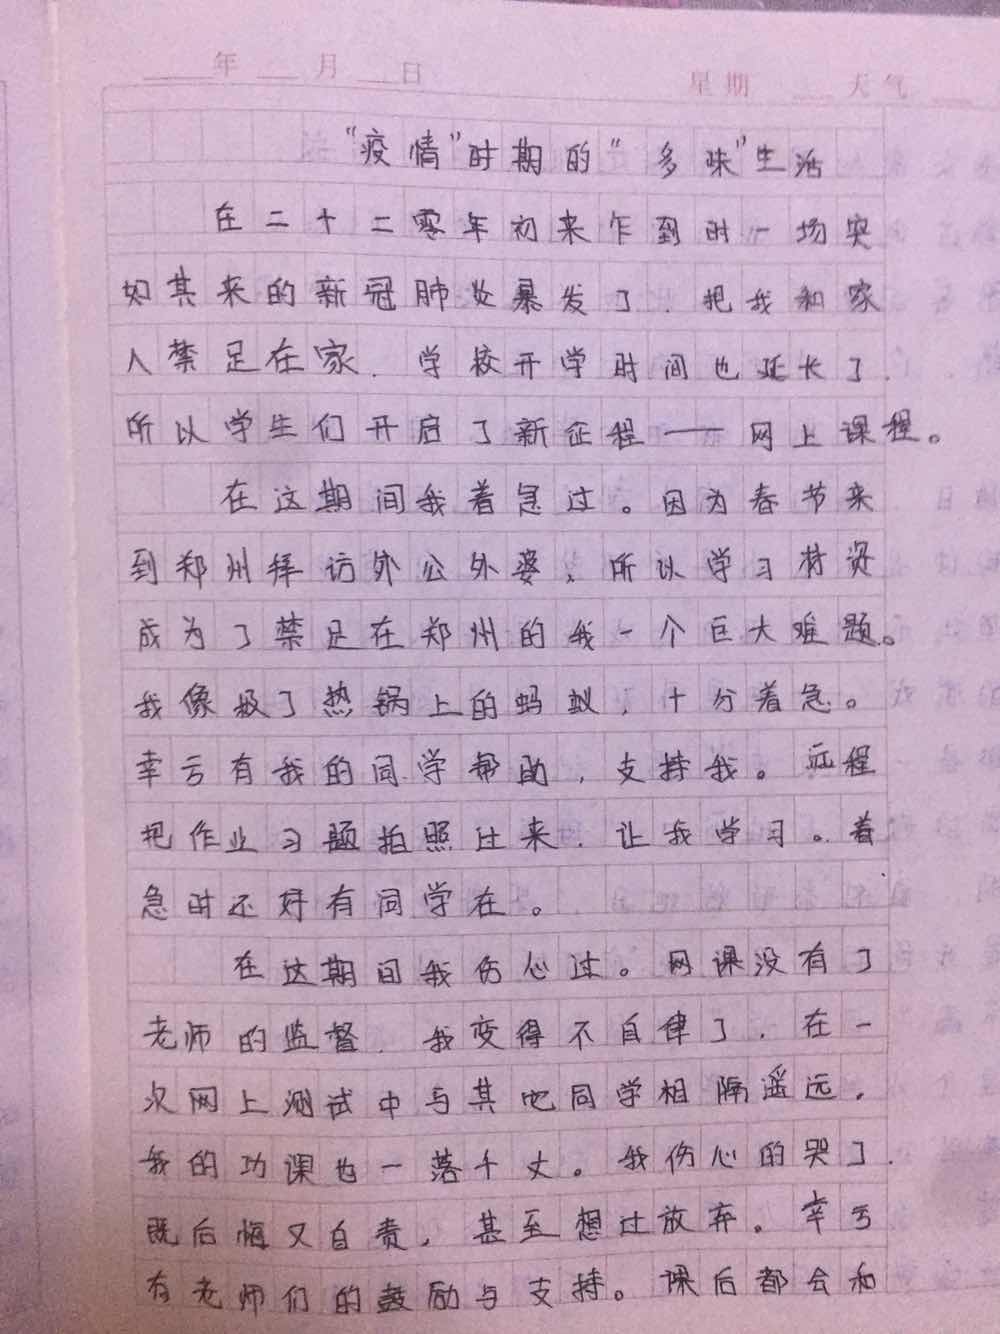 ____年 ___月 ___日 星期 ___ 天气 ___
"疫情"时期的"多味"生活
在二十二零年初来乍到时一场突
如其来的新冠肺炎暴发了，把我和家
人禁足在家，学校开学时间也延长了，
所以学生们开启了新征程——网上课程。
在这期间我着急过。因为春节来
到郑州拜访外公外婆，所以学习材资
成为了禁足在郑州的我一个巨大难题。
我像极了热锅上的蚂蚁，十分着急。
幸亏有我的同学帮助，支持我。远程
把作业习题拍照过来，让我学习。着
急时还好有同学在。
在这期间我伤心过。网课没有了
老师的监督，我变得不自律了，在一
次网上测试中与其他同学相隔遥远，
我的功课也一落千丈。我伤心的哭了，
既后悔又自责，甚至想过放弃。幸亏
有老师们的鼓励与支持。课后都会和